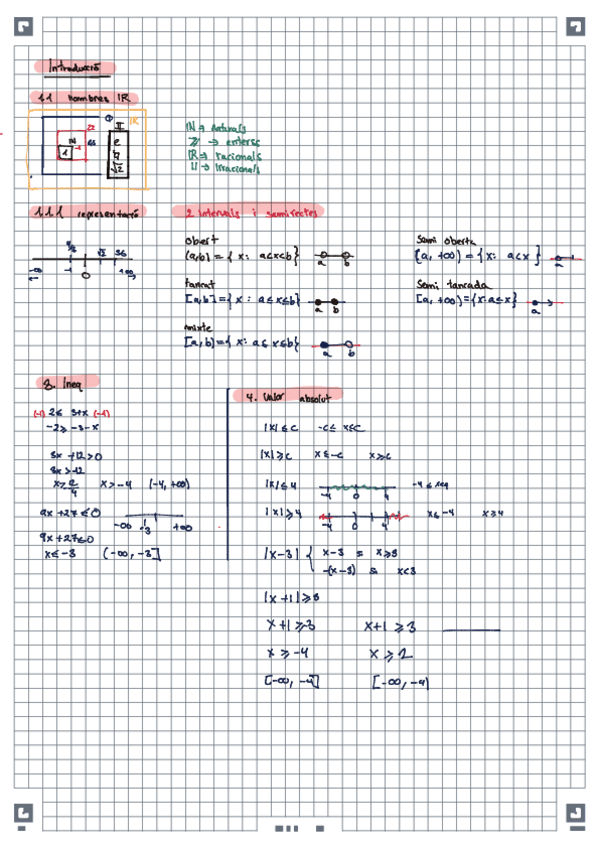 Introducció
1.1 nombres IR
IR
Q
II
Z
IN
1
-1
e
√2
IN → naturals
Z → enters
IR → racionals
II → Irracionals
1.1.1 representació
-∞ -1 0 √2 +∞
2 intervals i semirectes
obert
(a,b) = { x: a<x<b}
a b
tancat
[a,b] = { x : a ≤ x ≤ b}
a b
mixte
[a,b) = { x: a ≤ x ≤ b}
a b
Semi oberta
(a, +∞) = { x: a<x }
a
Semi tancada
[a, +∞) = {x: a ≤ x}
a
3. Ineq
(-1) 2 ≤ 3+x (-1)
-2 ≥ -3 -x
3x +12>0
3x >-12
x > -4 (-4, +∞)
9x +27 ≤ 0
-∞ -3 +∞
9x +27 ≤ 0
x ≤ -3 (-∞, -3]
4. Valor absolut
|x| ≤ c -c ≤ x ≤ c
|x| ≥ c x ≤ -c x ≥ c
|x| ≤ 4 -4 0 4
|x| ≥ 4 -4 0 4 x ≤ -4 x ≥ 4
|x-3| { x-3 si x ≥ 3
-(x-3) si x<3
|x +1| ≥ 3
x+1 ≥ -3 x+1 ≥ 3
x ≥ -4 x ≥ 2
[-∞, -4] [-∞, -4)